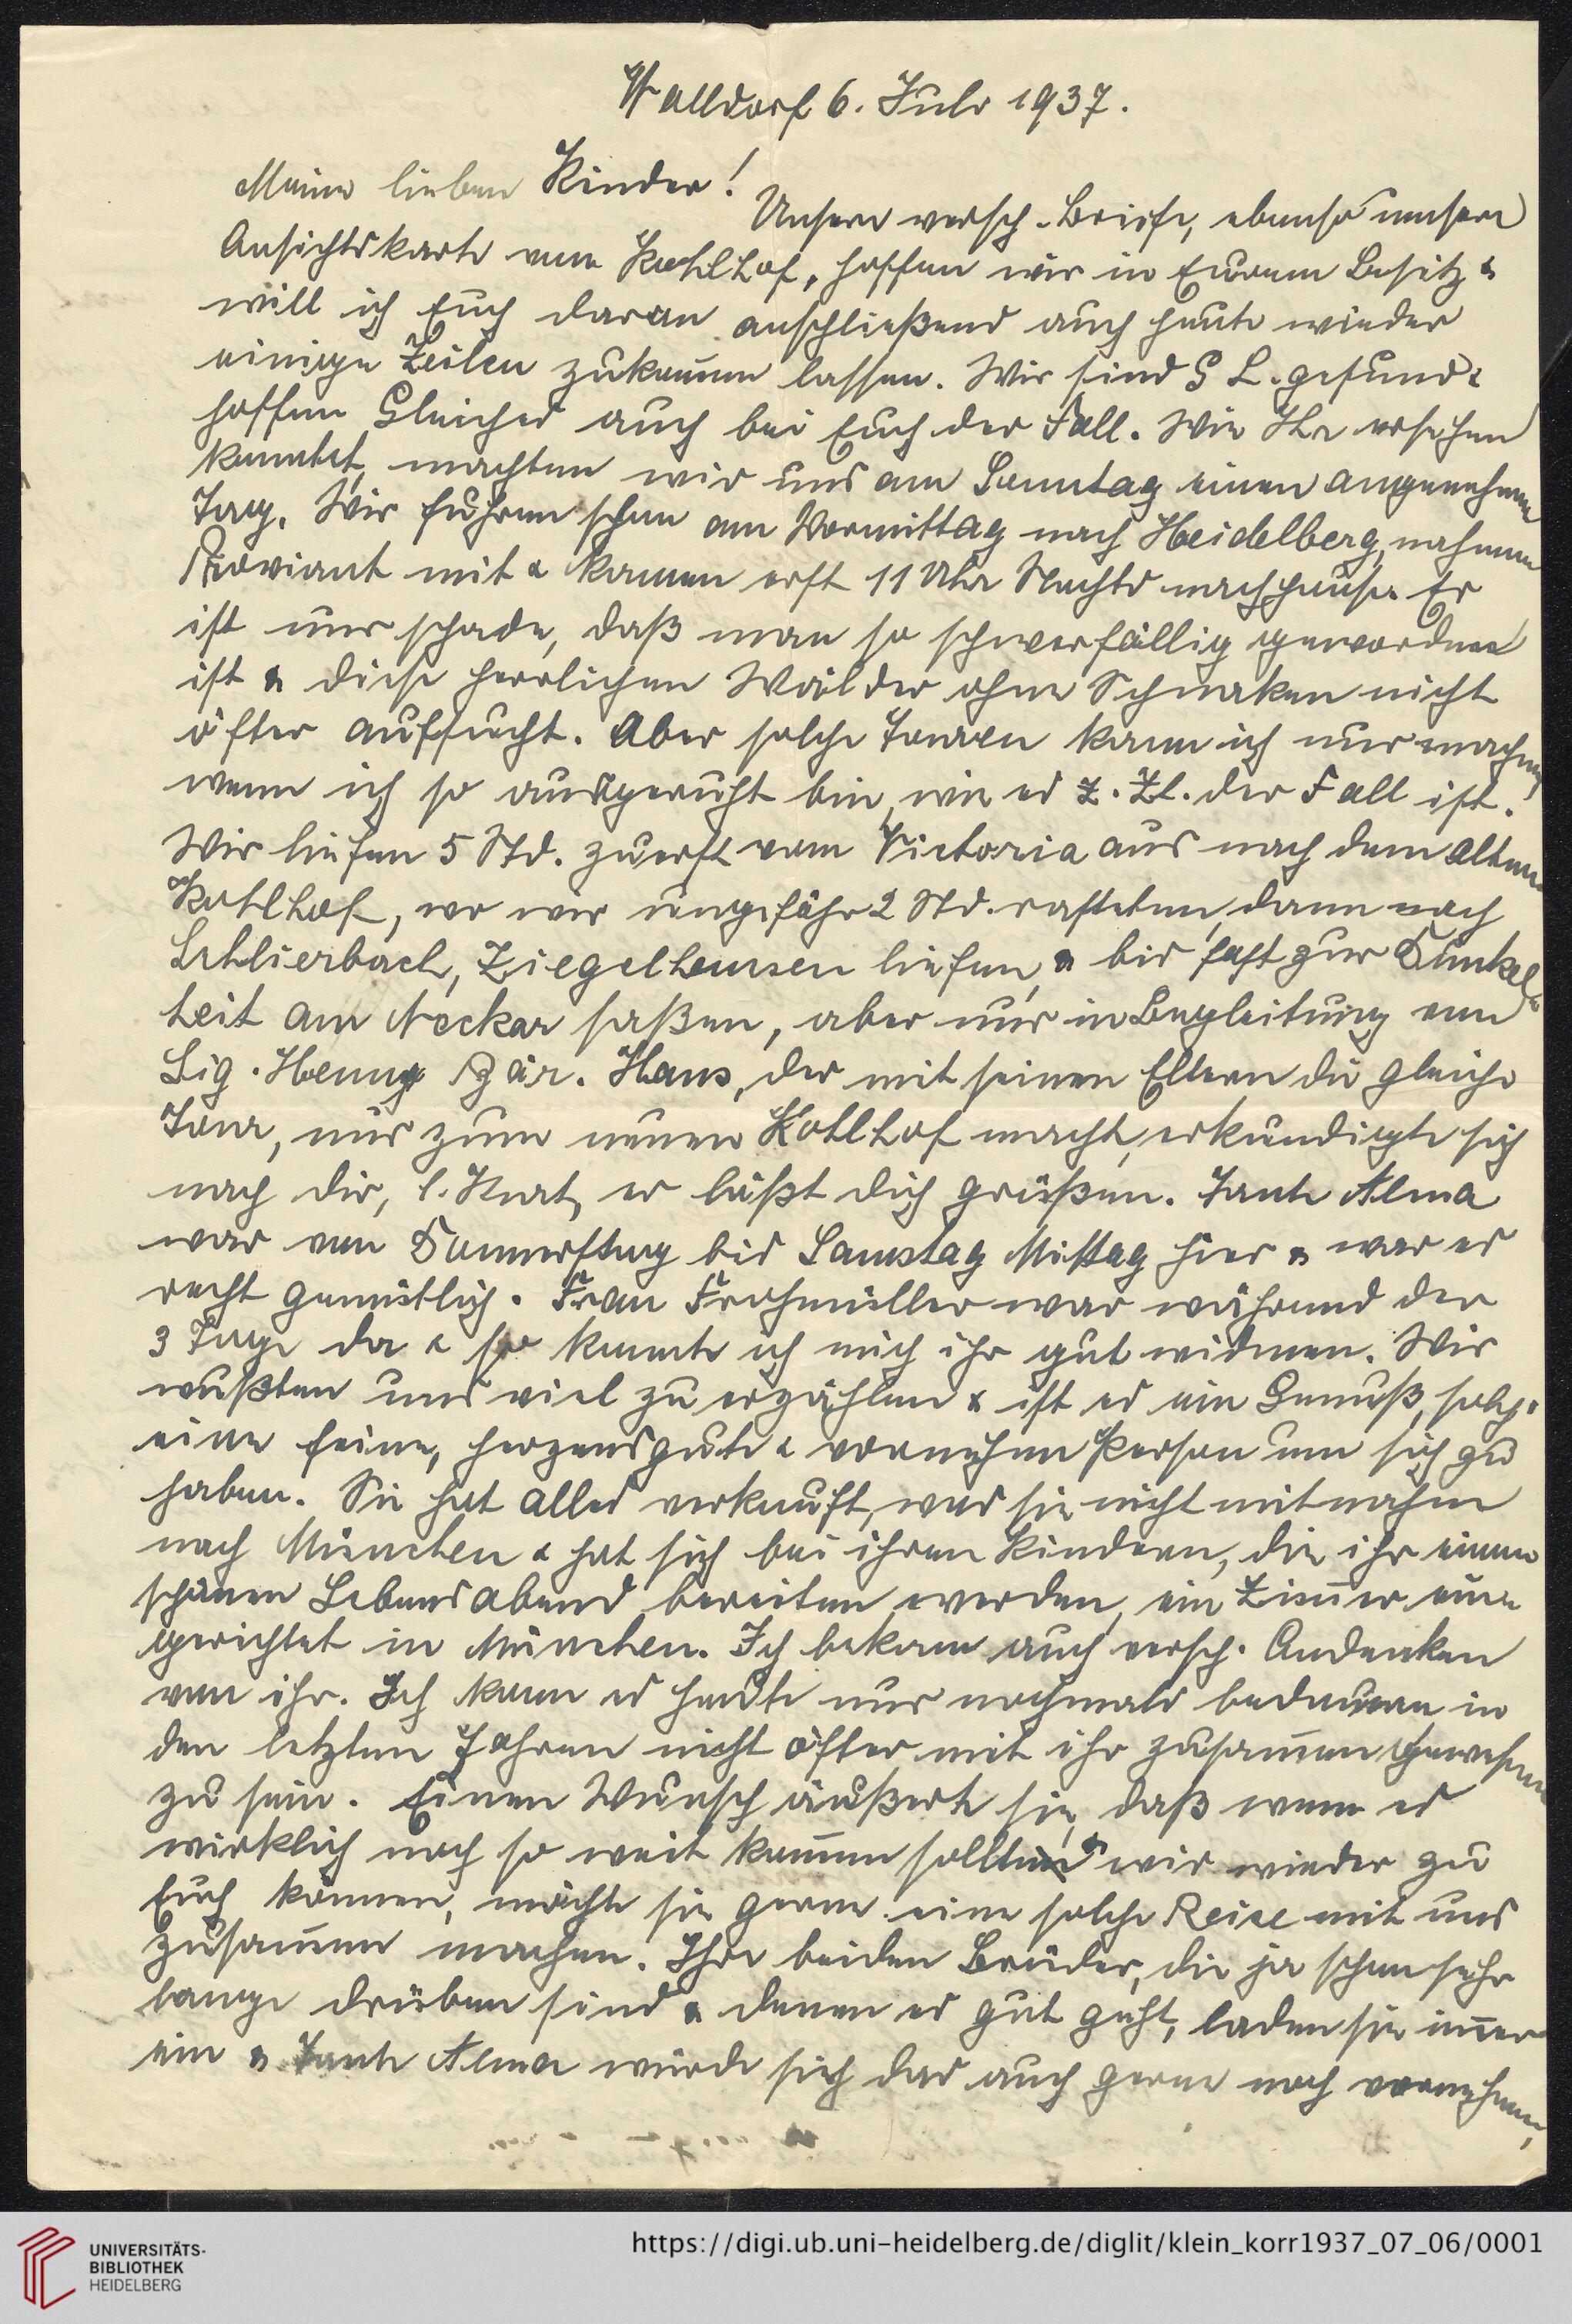 Walldorf 6. Juli 1937.
Meine lieben Kinder!
Unsere versch. Briefe, ebenso unsere
Ansichtskarte vom Kohlhof, hoffen wir in Eurem Besitz &
will ich Euch daran anschließend auch heute wieder
einige Zeilen zukom̄en lassen. Wir sind G. L. gesund &
hoffen Gleiches auch bei Euch der Fall. Wie Ihr ersehen
konntet, machten wir uns am Sonntag einen angenehmen
Tag. Wir fuhren schon am Vormittag nach Heidelberg, nahmen
Proviant mit & kamen erst 11 Uhr Nachts nachhause. Es
ist nur schade, daß man so schwerfällig geworden
ist & diese herrlichen Wälder ohne Schnaken nicht
öfter aufsucht. Aber solche Touren kann ich nur machen,
wenn ich so ausgeruht bin, wie es z. Zt. der Fall ist.
Wir liefen 5 Std. zuerst vom Victoria aus nach dem alten
Kohlhof, wo wir ungefähr 2 Std. rasteten, dann nach
Schlierbach, Ziegelhausen liefen, & bis fast zur Dunkel-
heit am Neckar saßen, aber nur in Begleitung von
Sig. Hans, der mit seinen Eltern die gleiche
Tour, nur zum neuen Kohlhof macht, erkundigte sich
nach dir, l. Kurt, er läßt dich grüßen. Tante Alma
war von Donnerstag bis Samstag Mittag hier & war es
recht gemütlich. Frau Frohmüller war während der
3 Tage da & so konnte ich mich ihr gut widmen. Wir
wußten uns viel zu erzählen & ist es ein Genuß, solch
eine feine, herzensgute & vornehme Person um sich zu
haben. Sie hat alles verkauft, was sie nicht mitnahm
nach München & hat sich bei ihren Kindern, die ihr einen
schönen Lebensabend bereiten werden, ein Zim̄er ein-
gerichtet in München. Ich bekam auch versch. Andenken
von ihr. Ich kann es heute nur nochmals bedauern in
den letzten Jahren nicht öfter mit ihr zusam̄en gewesen
zu sein. Einen Wunsch äußerte sie, daß wenn es
wirklich noch so weit kom̄en sollte & wir wieder zu
Euch können, möchte sie gerne eine solche Reise mit uns
zusam̄en machen. Ihre beiden Brüder, die ja schon sehr
lange drüben sind & denen es gut geht, laden sie im̄er
ein & Tante Alma würde sich das auch gerne noch vornehmen,
UNIVERSITÄTS-
BIBLIOTHEK
HEIDELBERG
https://digi.ub.uni-heidelberg.de/diglit/klein_korr1937_07_06/0001